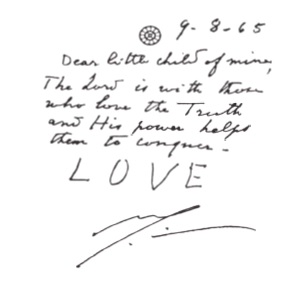 9-8-65
Dear little child of mine,
The Lord is with those
who love the Truth
and His power helps
them to conquer.-
LOVE